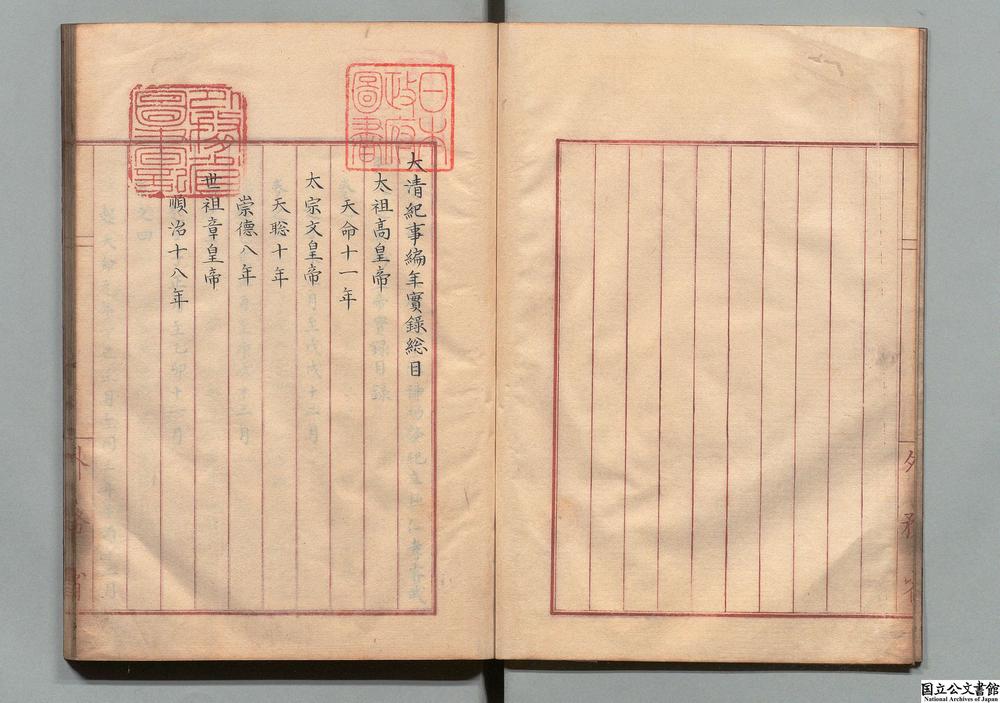 大清紀事編年實録総目
太祖高皇帝
天命十一年
太宗文皇帝
天聡十年
崇德八年
世祖章皇帝
順治十八年
日本
政府
圖書
外務省
圖書章
外務省
国立公文書館
National Archives of Japan